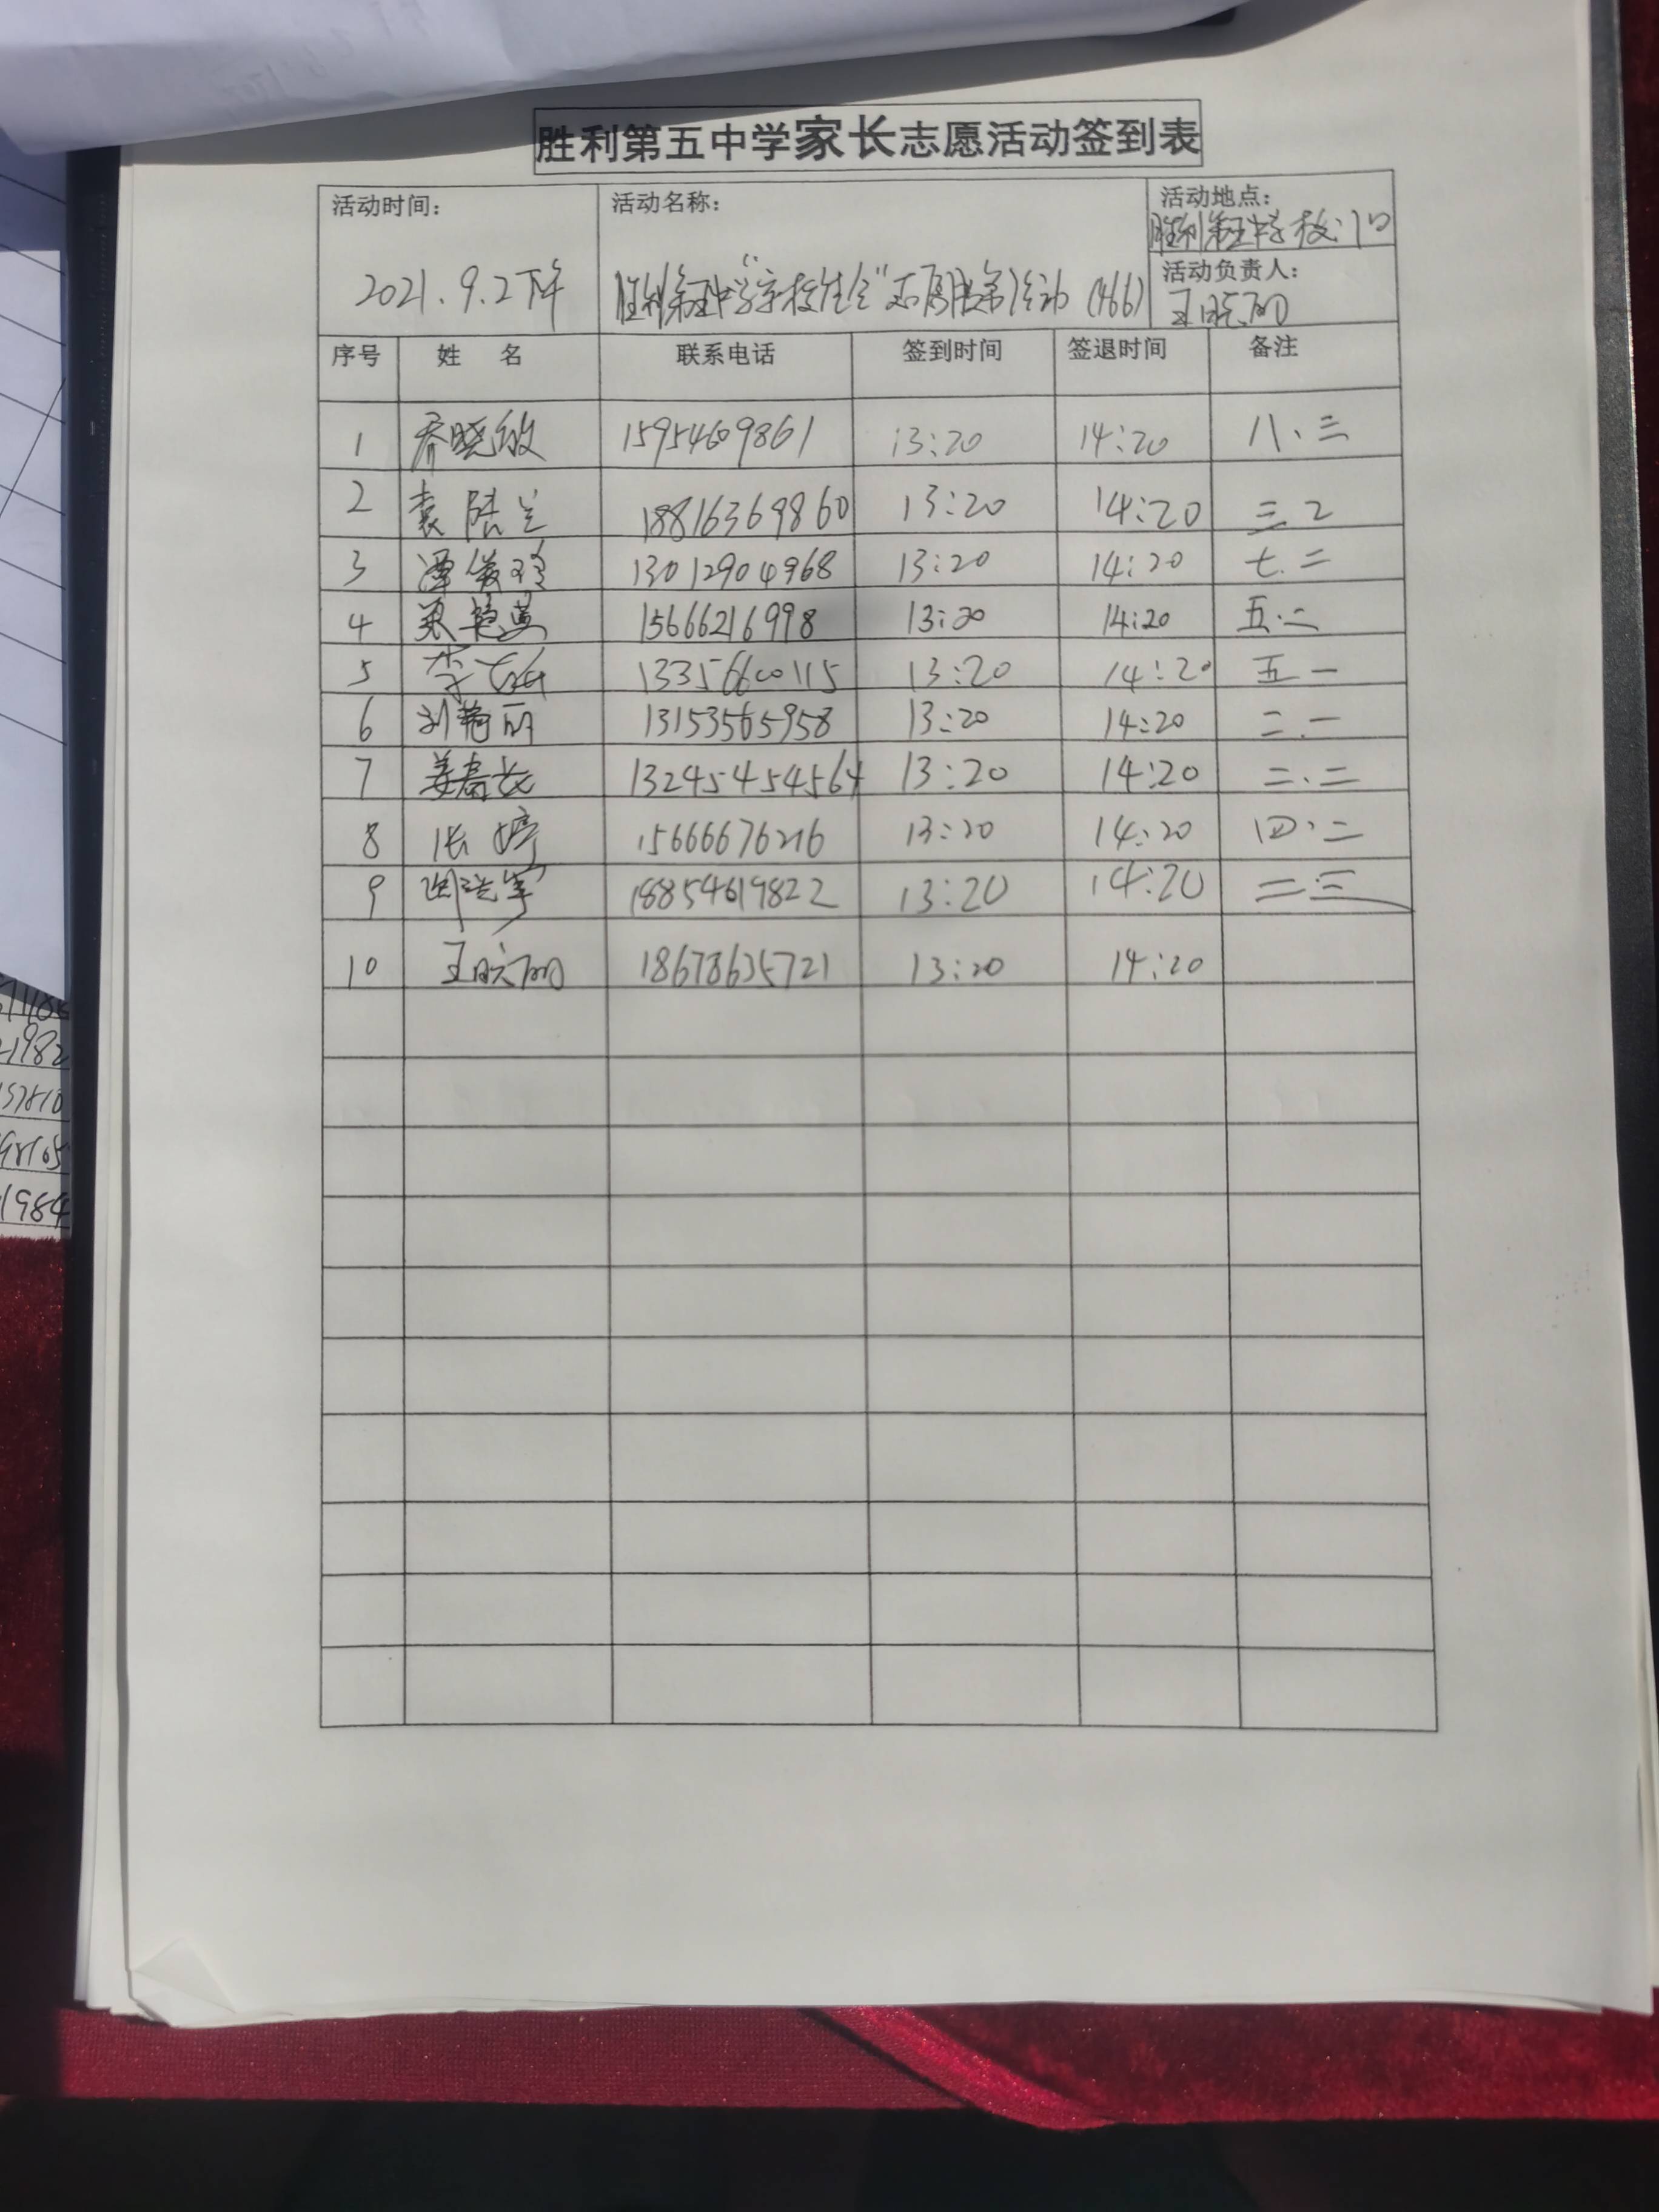 胜利第五中学家长志愿活动签到表
活动时间: 活动名称: 活动地点:
胜利第五中学校门口
2021.9.2下午 胜利第五中学"守校生会"志愿服务活动 (466) 活动负责人:
王晓丽
序号 姓 名 联系电话 签到时间 签退时间 备注
1 乔晓敏 15954609861 13:20 14:20 八、三
2 袁陆兰 18816369860 13:20 14:20 三.2
3 谭俊玲 13012904968 13:20 14:20 七.二
4 15666216998 13:20 14:20 五.二
5 李 13356600115 13:20 14:20 五一
6 刘艳丽 13153565958 13:20 14:20 二.一
7 姜春 13245454564 13:20 14:20 二.二
8 张婷 15666676216 13:20 14:20 四.二
9 18854619822 13:20 14:20 二.三
10 王晓丽 18678635721 13:20 14:20
1982
1984